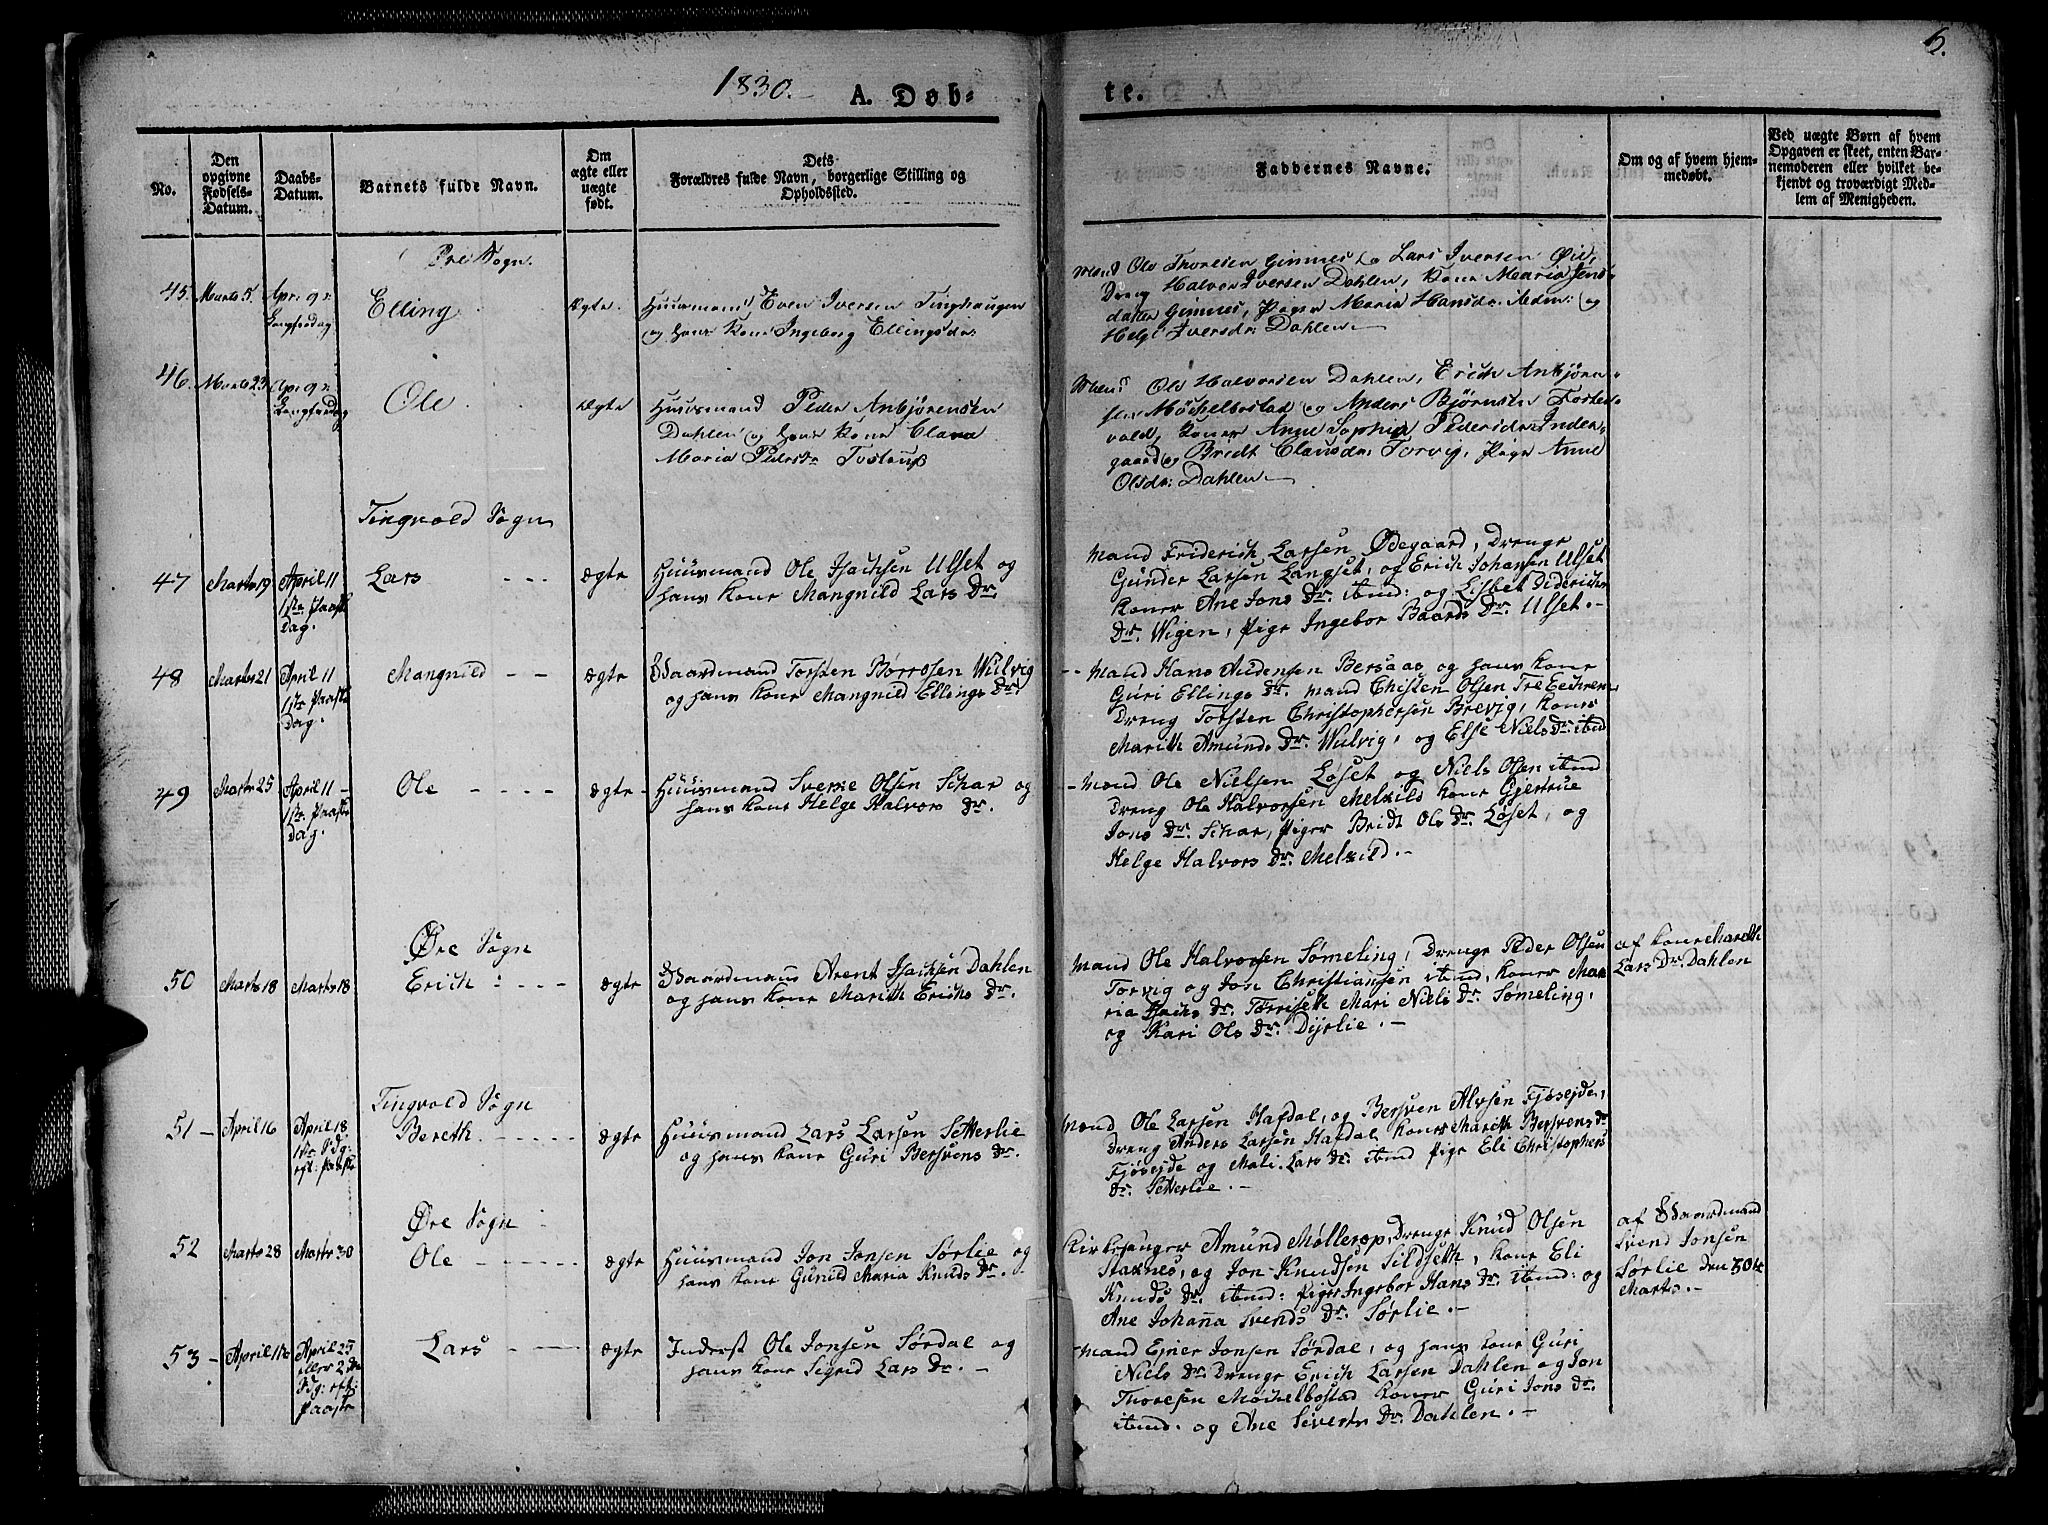 1830. A. Døb-
te.
5.
No.
Den opgivne Fødsels-Datum.
Daabs-Datum.
Barnets fulde Navn.
Om ægte eller uægte født.
Dets Forældres fulde Navn, borgerlige Stilling og Opholdssted.
Faddernes Navne.
Om og af hvem hjemmedøbt.
Ved uægte Børn af hvem Opgaven er skeet, enten Barnemoderen eller hvilket bekjendt og troværdigt Medlem af Menigheden.
Øre Sogn.
45. Marts 5. Apr. 9 Langfredag Elling Ægte. Huusmand Even Iversen Tinghaugen
og hans Kone Ingeborg Ellingsdr
Mænd Ole Thoresen Gimnes og Lars Iversen Øie,
Dreng Halvor Iversen Dahlen, Kone Maria Jens
datter Gimnes, Piger Maren Hansdr. ibidm: og
Helge Iversdr. Dahlen.
46. Marts 23 Apr. 9 Langfredag Ole Ægte Huusmand Peder Anbjørensen
Dahlen og hans Kone Clara
Maria Pedersdr Tostens
Mænd Ole Halvorsen Dahlen, Erich Anbjørn-
sen Møchelbostad og Anders Bjørnsen
vold, Koner Anne Sophia Pedersdr. Inder-
gaard og Bredt Clausdr. Torvig, Pige Anne
Olsdr. Dahlen
Tingvold Sogn
47 Marts 19 April 11 1ste Paaske Dag. Lars - - - ægte Huusmand Ole Isachsen Ulset og
hans Kone Mangnild Lars Dr.
Mand Friderich Larsen Ødegaard, Drenge
Gunder Larsen Langset, og Erich Johansen Ulset
Koner Ane Jons Dr. ibmd: og Lisbet Diderichs
Dr. Wigen, Pige Ingebor Baards Dr. Ulset. -
48 Marts 21 April 11 1ste Paaske Dag. Mangnild - - ægte Gaardmand Torsten Børresen Wulvig
og hans Kone Mangnild Ellings Dr.
- Mand Hans Audensen Bersaas og hans Kone
Guri Ellings Dr. Mand Christen Olsen
Dreng Torsten Christophersen Brevig, Koner
Marith Amunds Dr. Wulvig, og Else Niels Dr. ibmd
49 Marts 25 April 11 - 1ste Paaske Dag. Ole - - - - ægte - Huusmand Sverre Olsen Schar og
hans Kone Helge Halvors Dr.
- Mand Ole Nielsen Løset og Niels Olsen ibmd
Dreng Ole Halvorsen Melkild Kone Gjertrue
Jons Dr. Schar, Piger Bridt Ols Dr. Løset, og
Helge Halvors Dr. Melkild. -
Øre Sogn
50 Marts 18 Marts 18 Erich - - - ægte Gaardmand Arent Isachsen Dahlen
og hans Kone Marith Erichs Dr.
Mand Ole Halvorsen Sømeling, Drenge Peder Olsen
Torvig og Jon Christiansen ibmd, Koner Ma-
ria Isachs Dr. Torriseth Mari Niels Dr. Sømeling,
og Kari Ols Dr. Dyrlie. -
af Kone Mareth
Lars Dr. Dahlen
Tingvold Sogn
51 - April 16 April 18 1ste Sdg: eft: Paaske Bereth. - - - - ægte Huusmand Lars Larsen Setterlie
og hans Kone Guri Bersvens Dr.
Mænd Ole Larsen Hafdal, og Bersven Alvsen Fjøsejde,
Dreng Anders Larsen Hafdal Koner Marith Bersvens Dr
Fjøsejde og Mali Lars Dr. ibmd Pige Eli Christophers
Dr. Setterlie. -
Øre Sogn
52 Marts 28 Marts 30 Ole - - - - ægte Huusmand Jon Jonsen Sørlie og
hans Kone Gunild Maria Knuds Dr.
Kirkesanger Amund Møllerop, Drenge Knud Olsen
Staxnes, og Jon Knudsen Sildseth, Kone Eli
Knuds Dr. ibmd: Piger Ingebor Hans Dr. ibmd: og
Ane Johanna Svends Dr. Sørlie. -
af Gaardmand
Svend Jonsen
Sørlie den 30te
Marts. -
53 - April April 25 eller 2den Sdg: eft: Paaske Lars - - - ægte Inderst Ole Jonsen Sørdal og
hans Kone Sigrid Lars Dr. -
- Mand Ejner Jonsen Sørdal, og hans Kone Guri
Niels Dr Drenge Erich Larsen Dahlen og Jon
Thoresen Møchelbostad Koner Guri Jons Dr.
ibmd. og Ane Siverts Dr. Dahlen. -